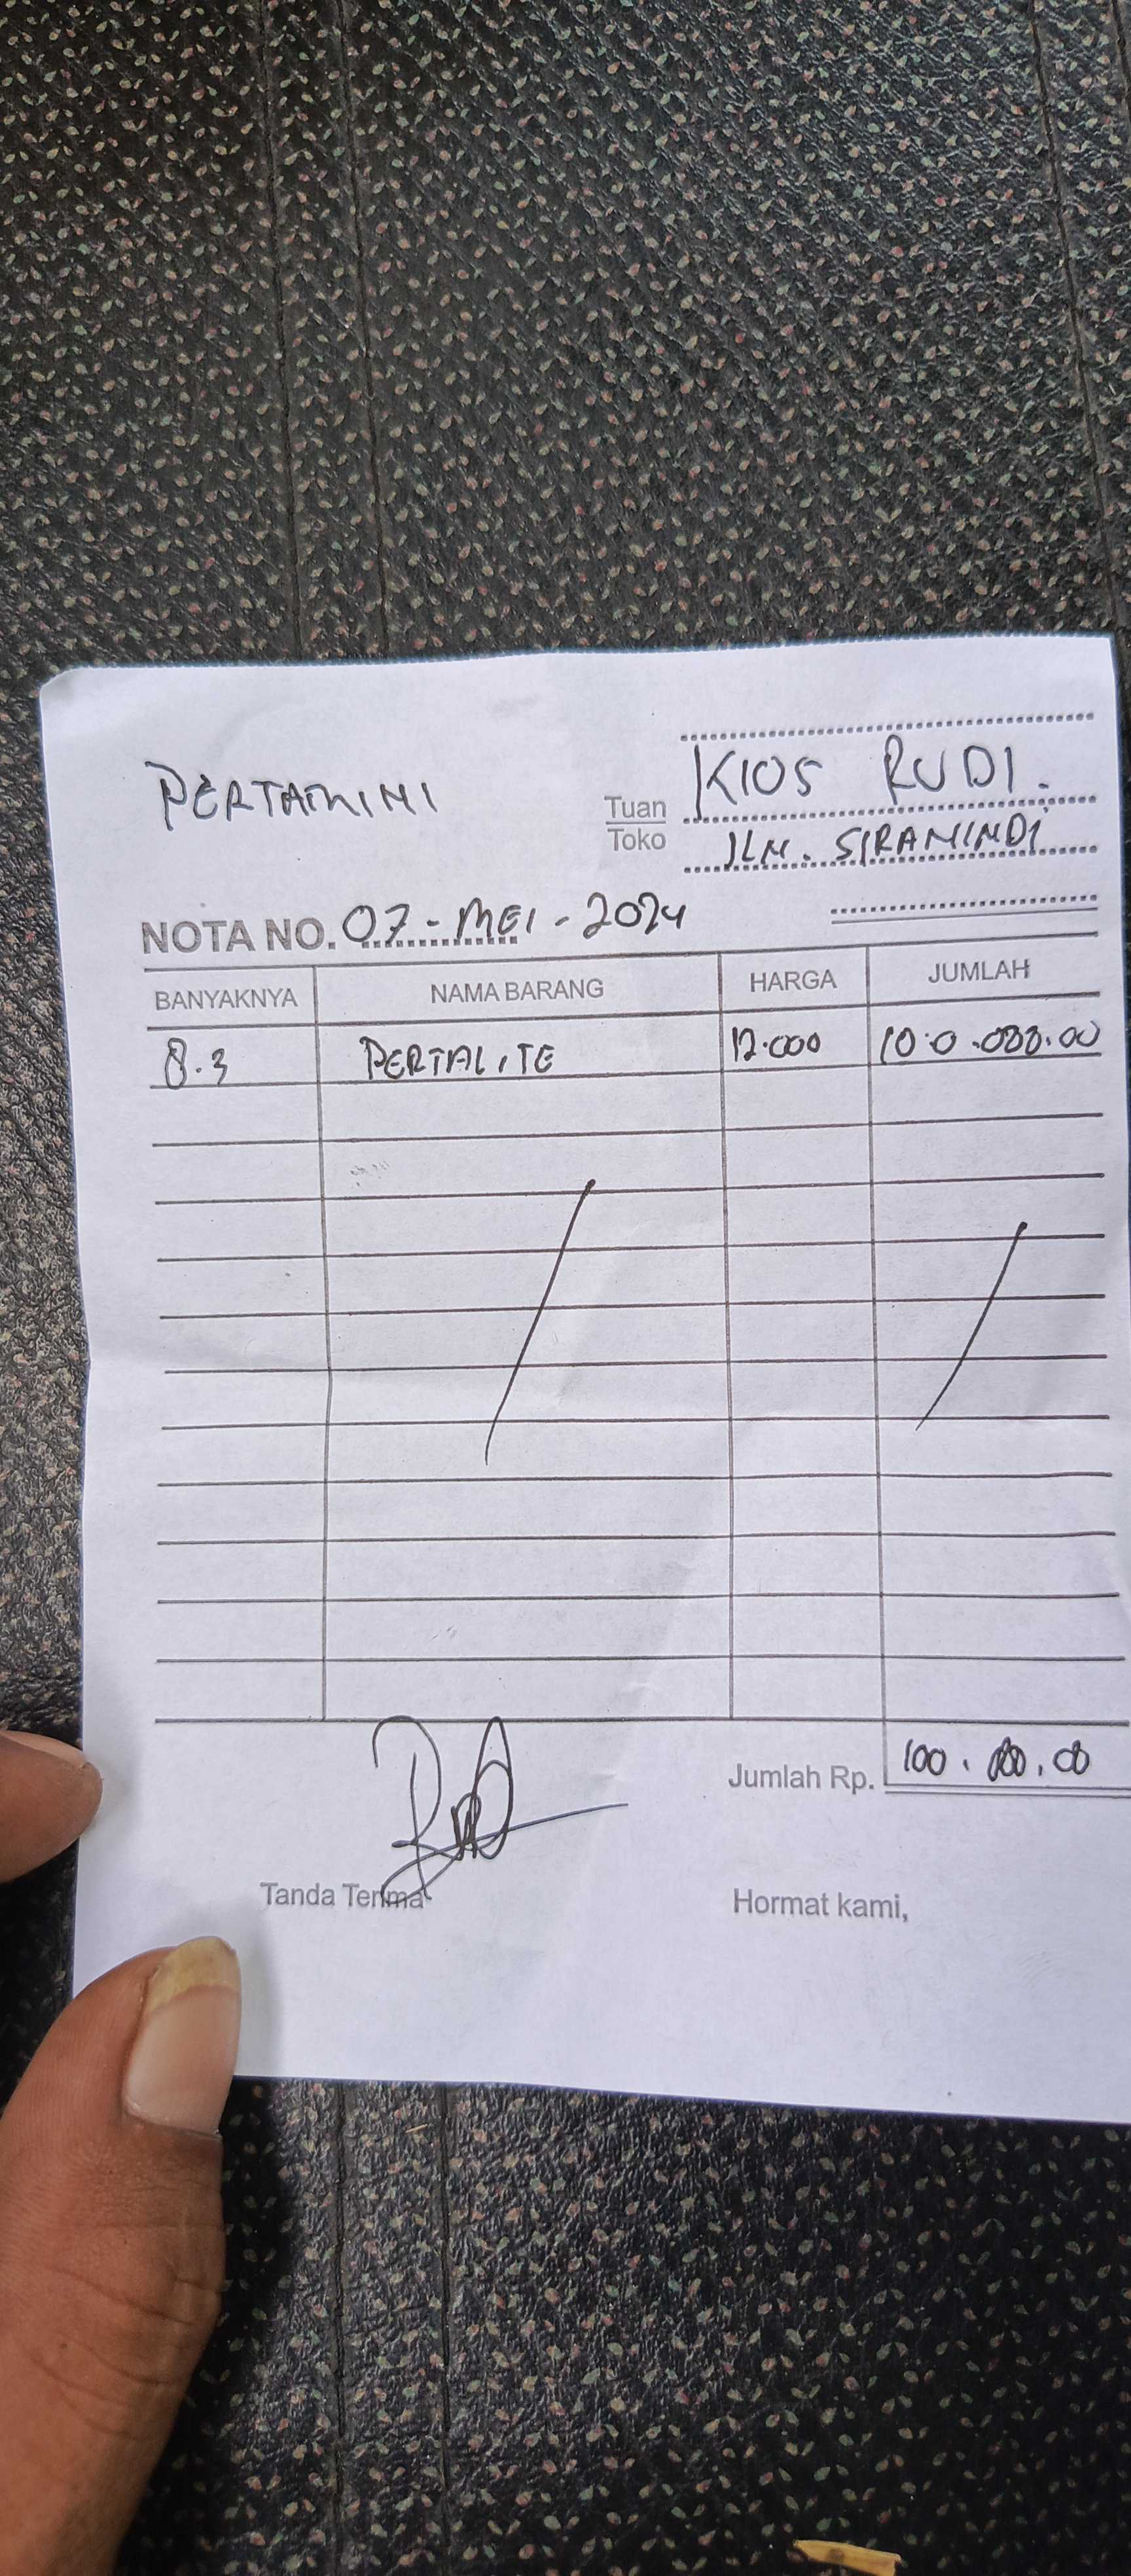 PERTAMINI
KIOS RUDI.
Tuan
Toko
JLN. SIRANINDI
NOTA NO. 07-MEI-2024
BANYAKNYA NAMA BARANG HARGA JUMLAH
8.3 PERTALITE 12.000 100.000.00
Jumlah Rp. 100.000.00
Tanda Terima
Hormat kami,